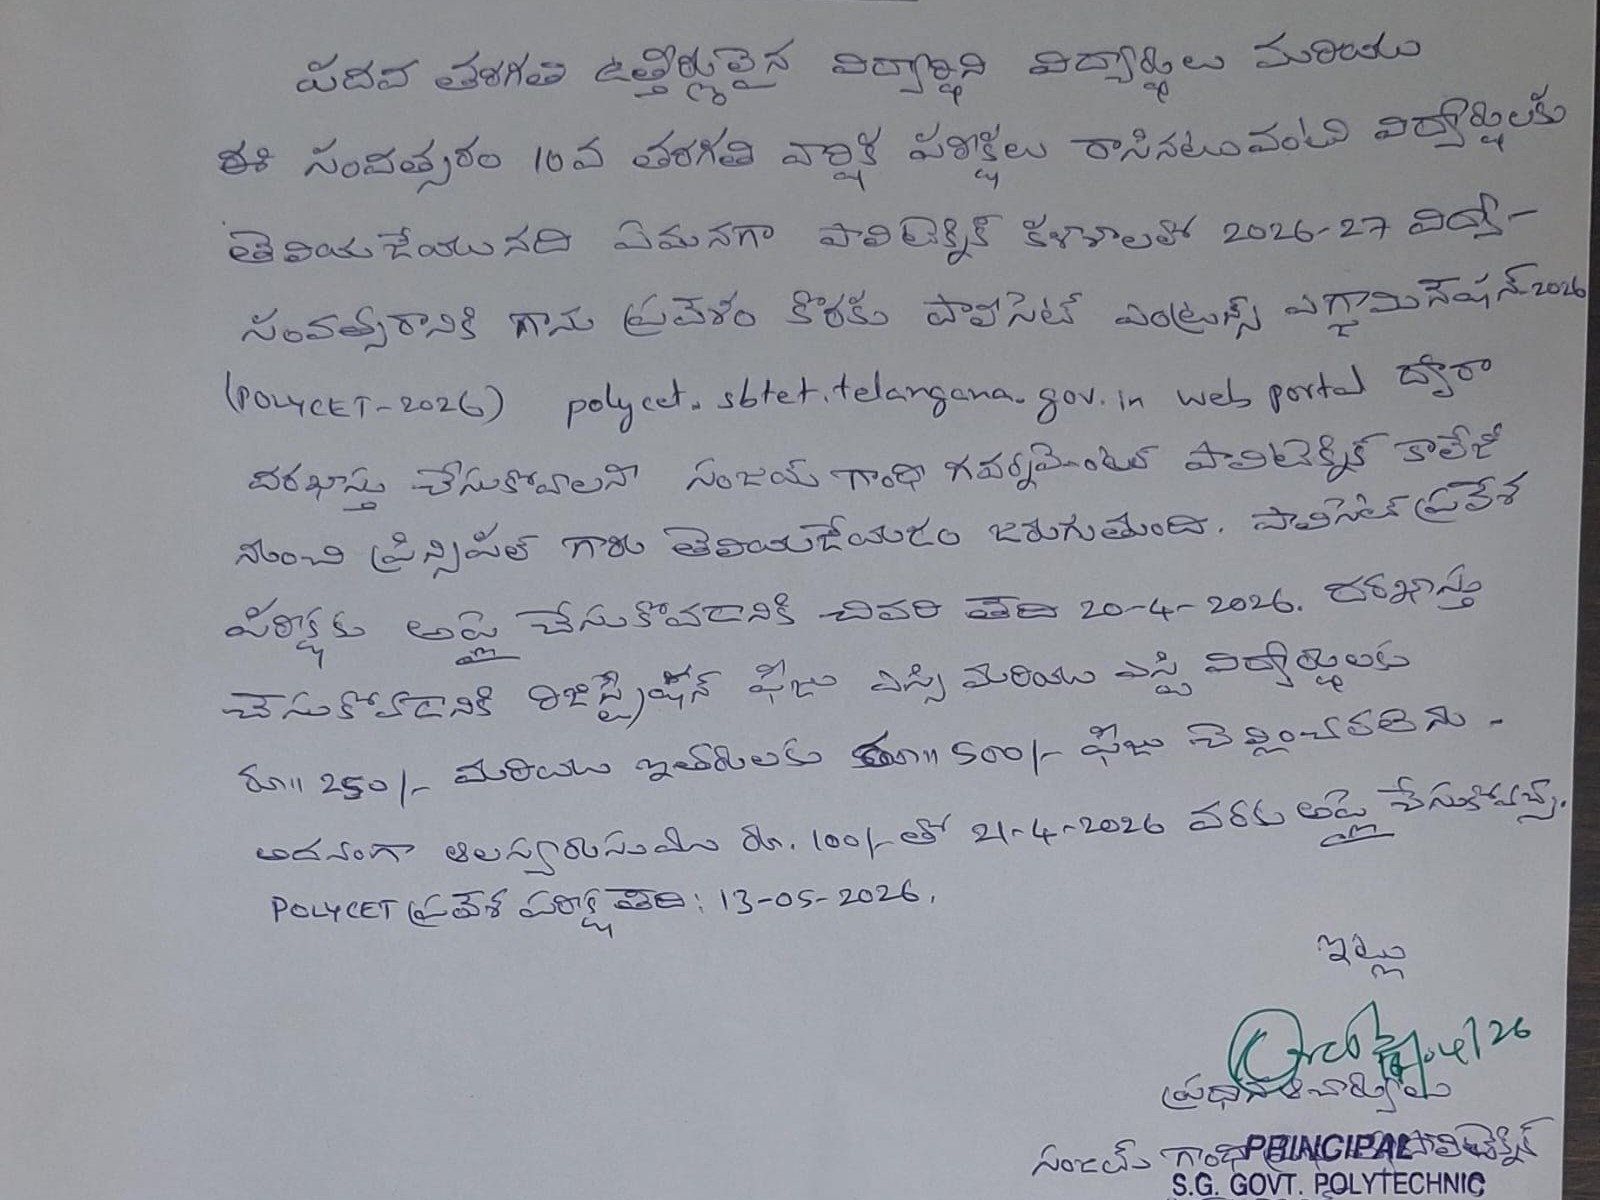 పదవ తరగతి ఉత్తీర్ణులైన విద్యార్థిని విద్యార్థులు మరియు
ఈ సంవత్సరం 10వ తరగతి వార్షిక పరీక్షలు రాసినటువంటి విద్యార్థులకు
తెలియజేయునది ఏమనగా పాలిటెక్నిక్ కళాశాలలో 2026-27 విద్యా-
సంవత్సరానికి గాను ప్రవేశం కొరకు పాలిసెట్ ఎంట్రన్స్ ఎగ్జామినేషన్ 2026
(POLYCET-2026) polycet.sbtet.telangana.gov.in web portal ద్వారా
దరఖాస్తు చేసుకోవాలని సంజయ్ గాంధి గవర్నమెంట్ పాలిటెక్నిక్ కాలేజీ
నుంచి ప్రిన్సిపల్ గారు తెలియజేయడం జరుగుతుంది. పాలిసెట్ ప్రవేశ
పరీక్షకు అప్లై చేసుకోవడానికి చివరి తేది 20-4-2026. దరఖాస్తు
చేసుకోవడానికి రిజిస్ట్రేషన్ ఫీజు ఎస్సి మరియు ఎస్టి విద్యార్థులకు
రూ॥ 250/- మరియు ఇతరులకు రూ॥ 500/- ఫీజు చెల్లించవలెను -
అదనంగా ఆలస్యరుసుము రూ. 100/- తో 21-4-2026 వరకు అప్లై చేసుకోవచ్చు.
POLYCET ప్రవేశ పరీక్ష తేది: 13-05-2026.
ఇట్లు
04/26
ప్రధానాచార్యులు
సంజయ్ గాంధి పాలిటెక్నిక్
PRINCIPAL
S.G. GOVT. POLYTECHNIC